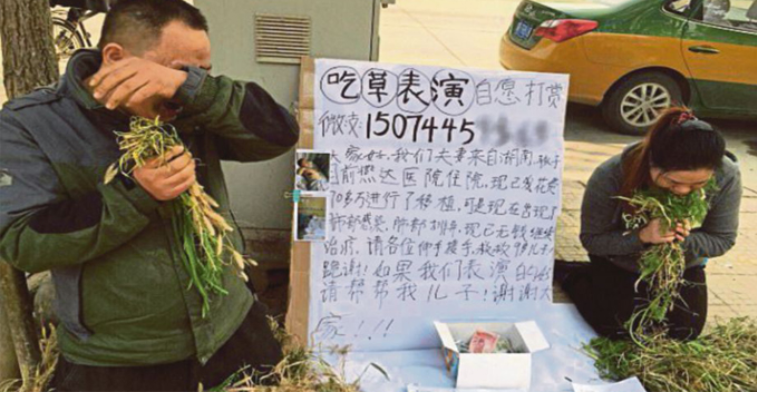 吃草表演自愿打赏
微支:1507445
大家好,我们夫妻来自湖南,孩子
目前燃达医院住院,现已花费
70多万进行了移植,可是现在出现了
肺部感染,肺部排异,现已无钱继续
治疗,请各位伸手援手,救救9岁儿子!
跪谢!如果我们表演
请帮帮我儿子!谢谢大
家!!!